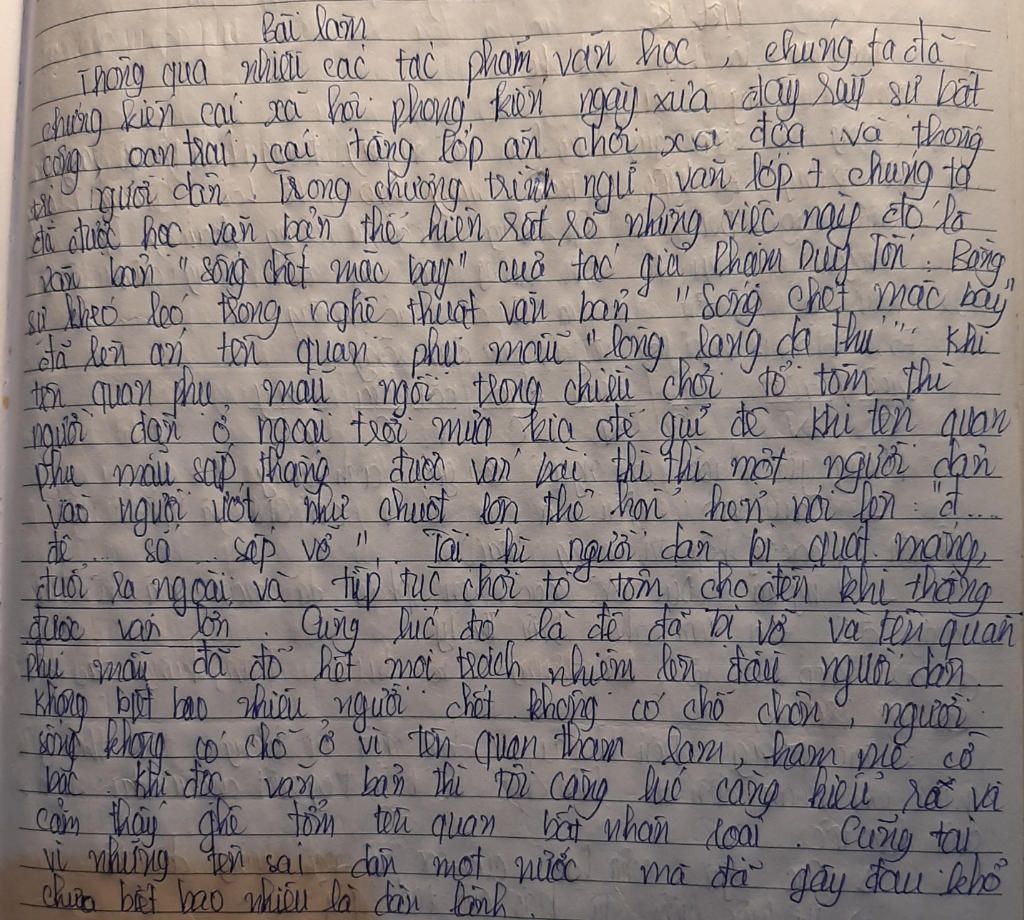 Bài làm
Thông qua nhiều các tác phẩm văn học, chúng ta đã
chứng kiến cái xã hội phong kiến ngày xưa đầy rẫy sự bất
công, oan trái, cái tầng lớp ăn chơi xa đọa và thống
trị người dân. Trong chương trình ngữ văn lớp 7 chúng ta
đã được học văn bản thể hiện rất rõ những việc này đó là
văn bản "sống chết mặc bay" của tác giả Phạm Duy Tốn. Bằng
sự khéo léo trong nghệ thuật văn bản "Sống chết mặc bay"
đã lên án tên quan phụ mẫu "lòng lang dạ thú". Khi
tên quan phụ mẫu ngồi trong chiếu chơi tổ tôm thì
người dân ở ngoài trời mưa kia để giữ đê. Khi tên quan
phụ mẫu sắp thắng được ván bài thì thì một người dân
vào người ướt như chuột lợn thở hổn hển nói lên: "đ....
đê... sắ.. sắp vỡ". Tại hì người dân bị quát mắng,
đuổi ra ngoài và tiếp tục chơi tổ tôm cho đến khi thắng
được ván lớn. Cùng lúc đó là đê đã bị vỡ và tên quan
phụ mẫu đã đổ hết mọi trách nhiệm lên đầu người dân
không biết bao nhiêu người chết không có chỗ chôn, người
sống không có chỗ ở vì tên quan tham lam, ham mê cờ
bạc. Khi đọc văn bản thì tôi càng lúc càng hiểu rõ và
cảm thấy ghê tởm tên quan bất nhân loại. Cũng tại
vì những tên sai dân một nước mà đã gây đau khổ
chưa biết bao nhiêu là dân lành.